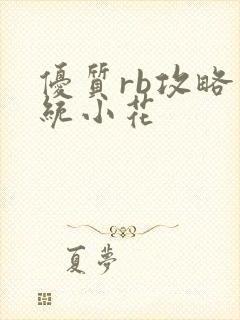 優質rb攻略
統小花
夏夢